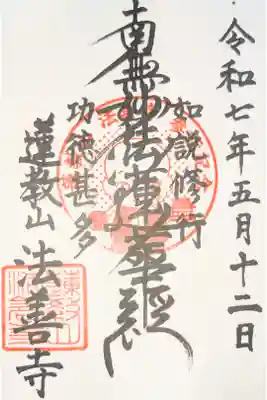 令和七年五月十二日
如説修行
南無妙法蓮華経
功徳甚多
蓮教山 法善寺